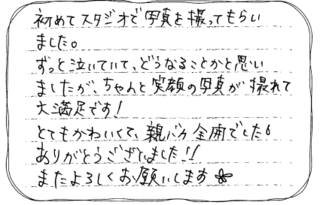 初めてスタジオで写真を撮ってもらい
ました。
ずっと泣いていて、どうなることかと思い
ましたが、ちゃんと笑顔の写真が撮れて
大満足です!
とてもかわいくて、親バカ全開でした!
ありがとうございました!!
またよろしくお願いします